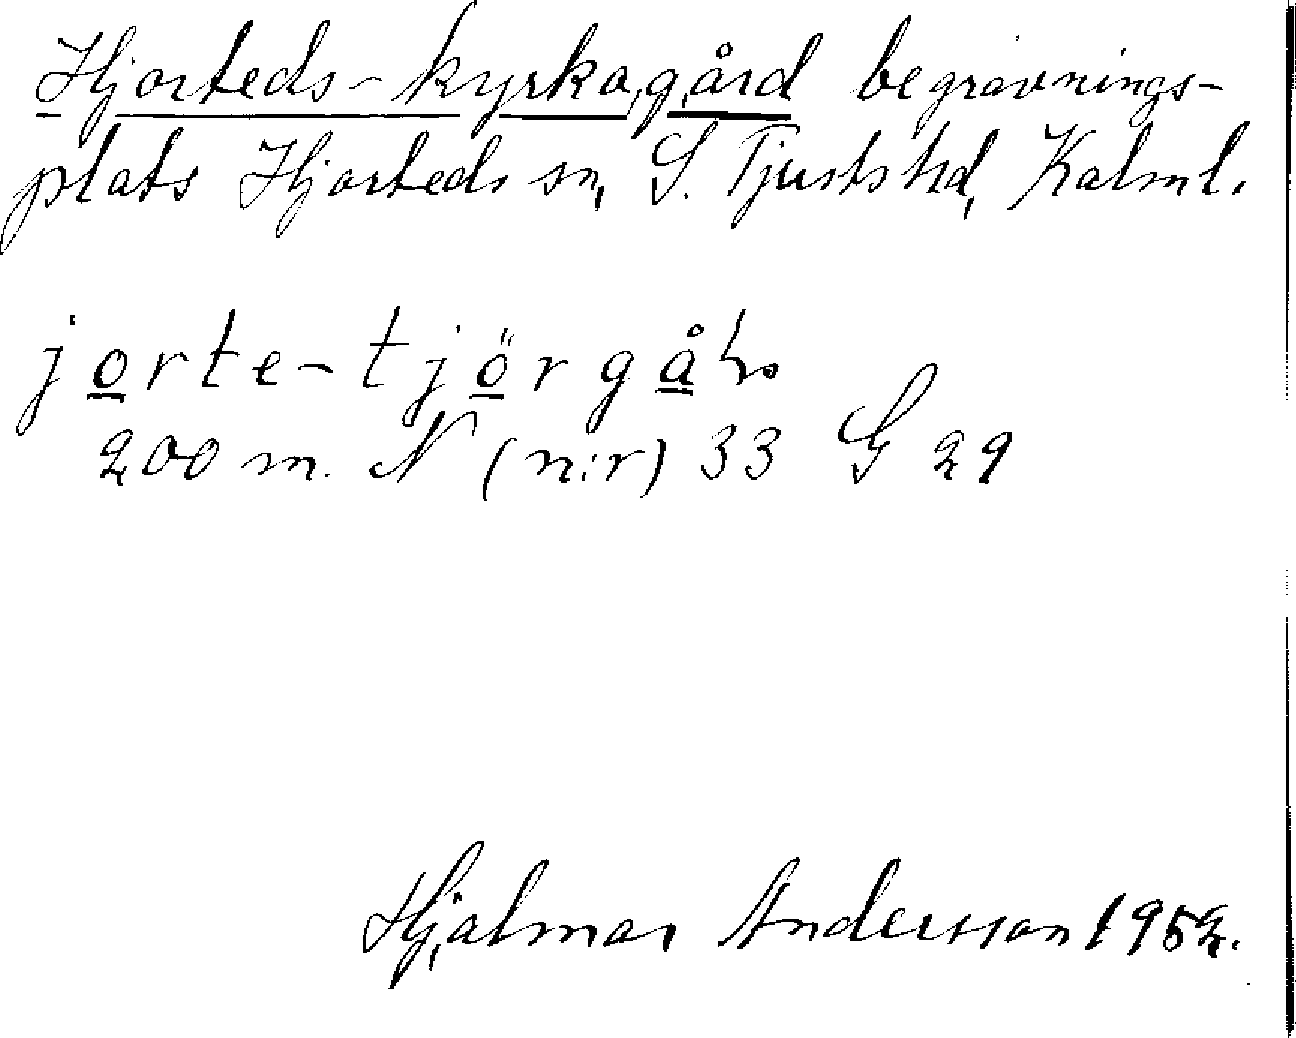 Hjorteds-kyrkogård begravnings-
plats Hjorteds sn, S. Tjusts hd, Kalm l.
jorte-tjörgå
200 m. N (n:r) 33 G 29
Hjalmar Andersson 1952.